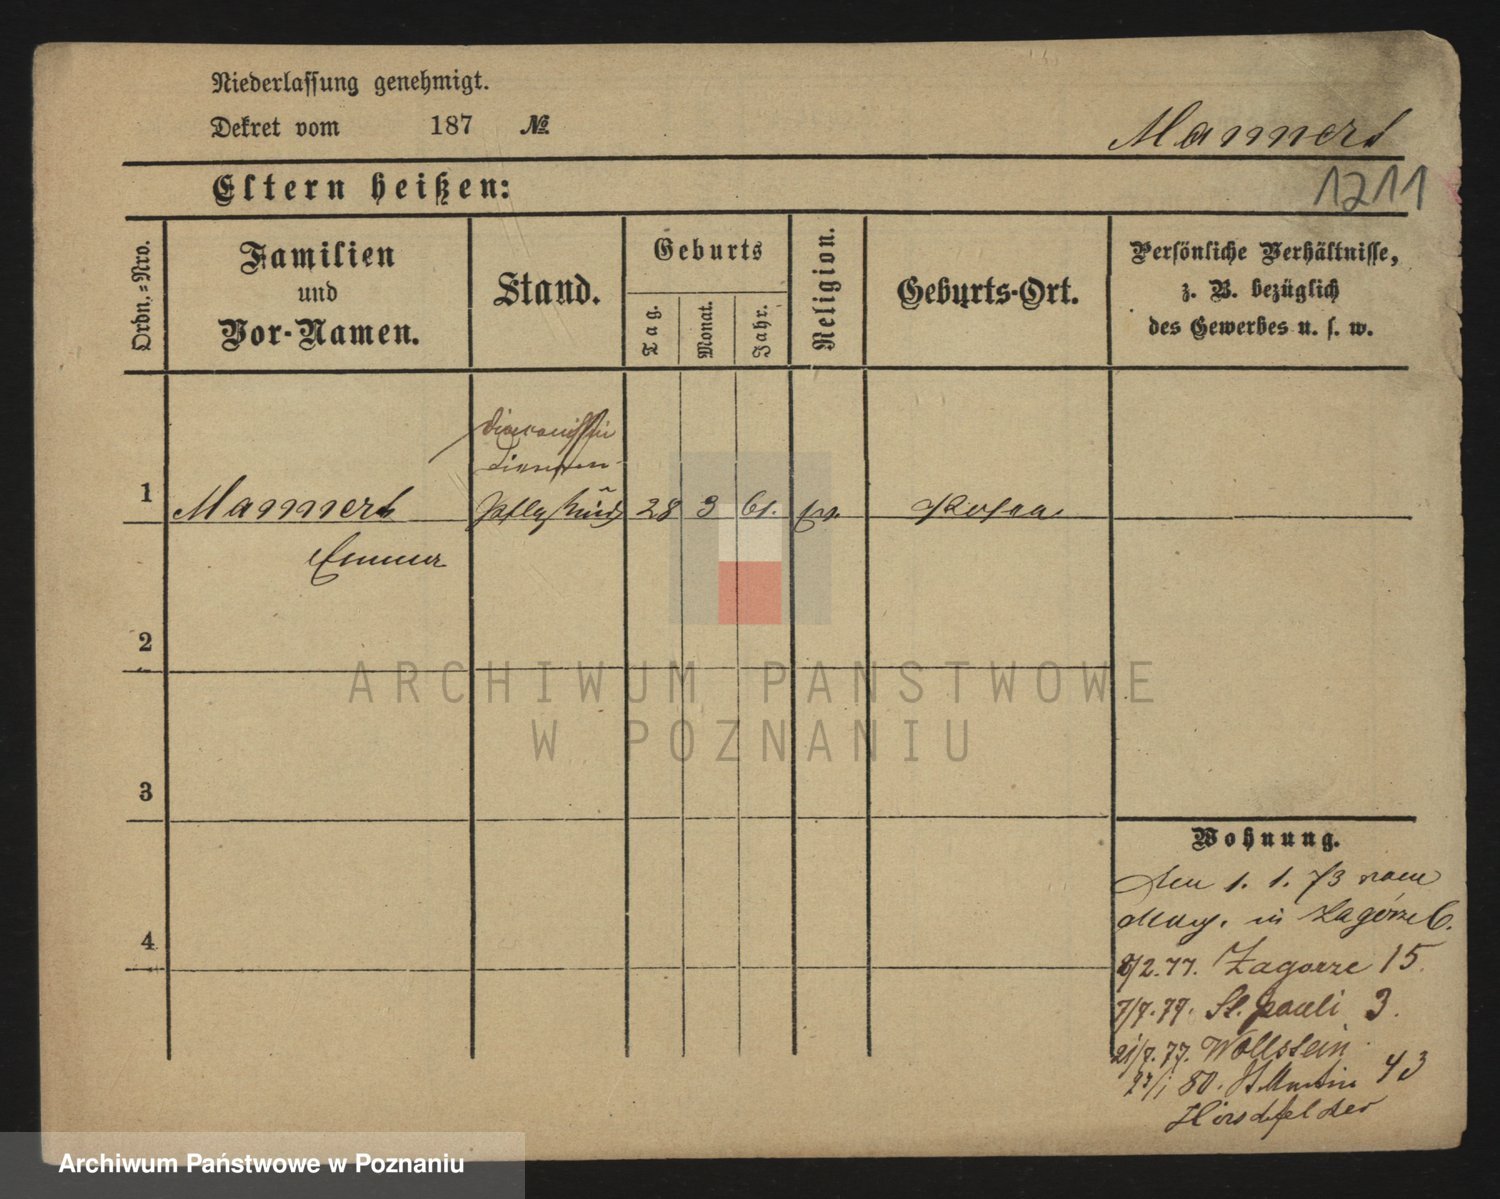 Niederlassung genehmigt.
Dekret vom 187 №
Mannert
1211
Eltern heißen:
Ordn.=Nro.
Familien
und
Vor-Namen.
Stand.
Geburts
Tag.
Monat.
Jahr.
Religion.
Geburts-Ort.
Persönliche Verhältnisse,
z. B. bezüglich
des Gewerbes u. s. w.
Diakonissin
1 Mannert 28 3 61. ev. Posen
Emma
2
ARCHIWUM PAŃSTWOWE
W POZNANIU
3
Wohnung.
1. 1. 73
in Zagórze 6.
8/2.77. Zagorze 15.
7/7.79. St. Pauli 3.
21/7.77. Wollstein
27/1 80. St Martin 43
Hirschfelder
4
Archiwum Państwowe w Poznaniu